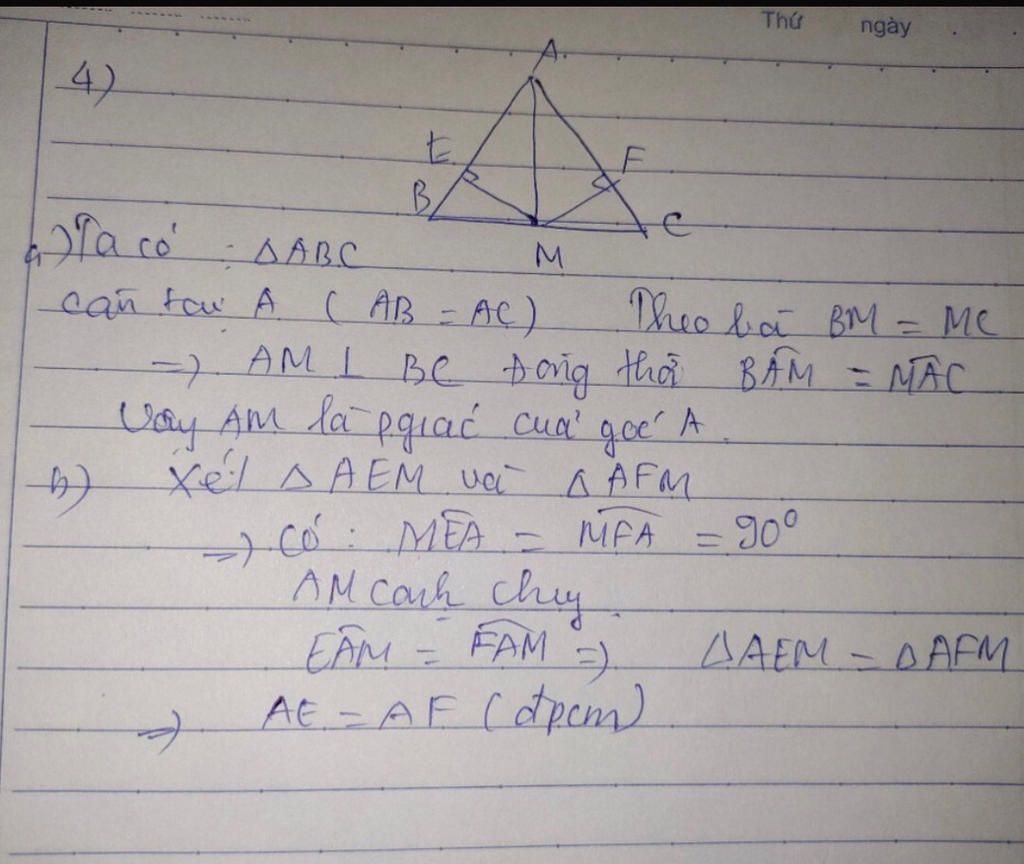 Thứ ngày
4)
A
E F
B C
M
a) Ta có : △ABC
cân tại A ( AB = AC ) Theo bài BM = MC
=> AM ⊥ BC Đồng thời BÂM = MÂC
Vậy AM là pgiác của góc A
b) Xét △AEM và △AFM
=> Có : MÊA = MF̂A = 90⁰
AM cạnh chug
EÂM = FÂM => △AEM = △AFM
=> AE = AF (đpcm)